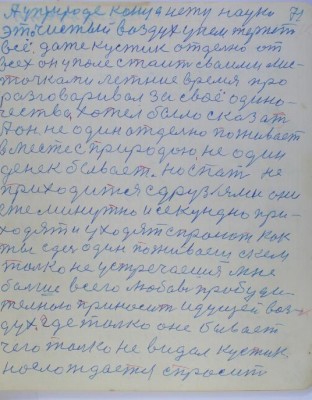 А у природе конца нету науки 71
это чистый воздух у нем терпит
всё, даже кустик отделно от
всех он у поле стоит своими лис-
точками летние время про
разговаривал за своё одино-
чества, хотел было сказат
А он не один отделно поживает
вместе с природою, не один
денек бывает. но спат не
приходится с друзьями они
еже минутно и секундно при-
ходят и уходят спросит как
ты сдес один поживаеш с кем
толко не устречаешся мне
болше всего любов пробуди-
телною приносит идущей воз-
дух. где толко оне бывает
чего толко не видал кустик.
наслождается спросит